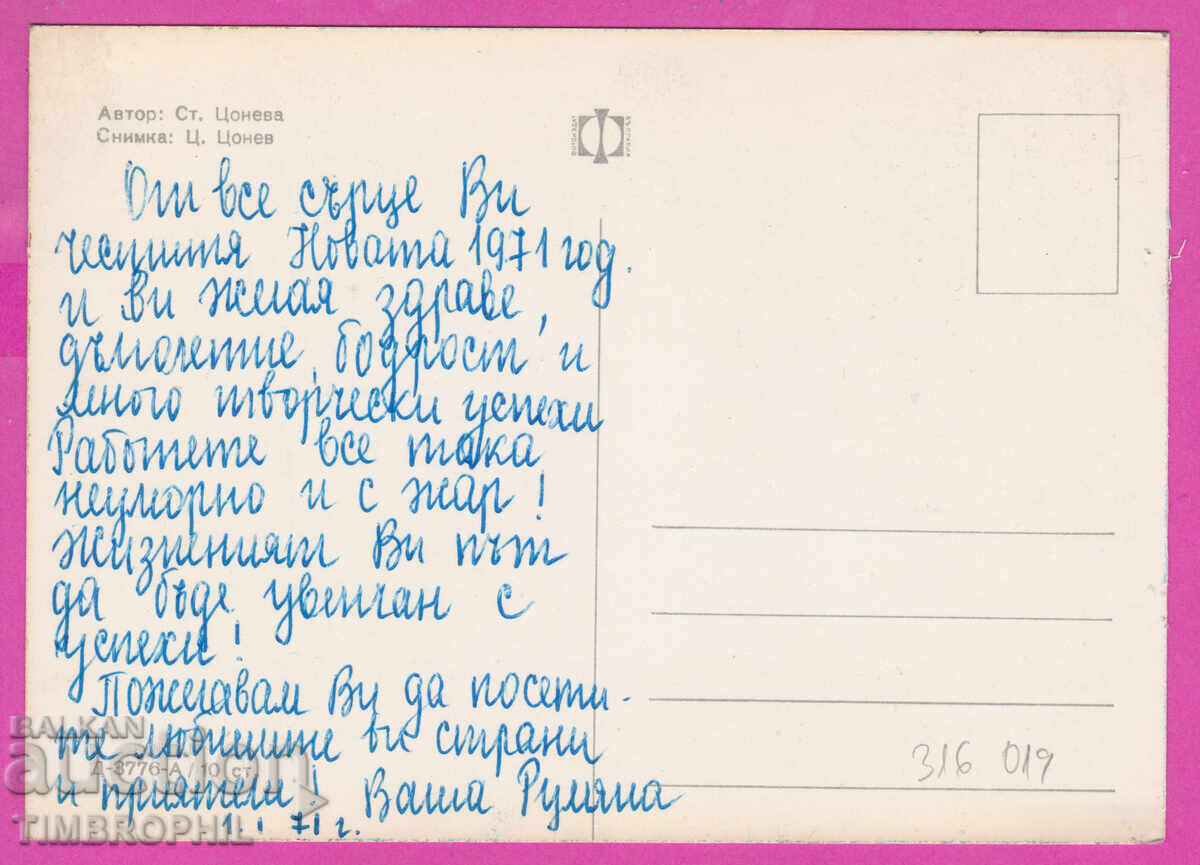 Автор: Ст. Цонева
Снимка: Ц. Цонев
ФОТОИЗДАТ
БЪЛГАРИЯ
От все сърце Ви
честитя Новата 1971 год.
и ви желая здраве,
дълголетие, бодрост и
много творчески успехи
Работете все така
неуморно и с жар!
Жизненият Ви път
да бъде увенчан с
успехи!
Пожелавам Ви да посети-
те любимите Ви страни
и приятели! Ваша Румяна
1. I 71 г.
Д-3776-А / 10 ст.
316 019
BALKAN
auction
TIMBROPHIL